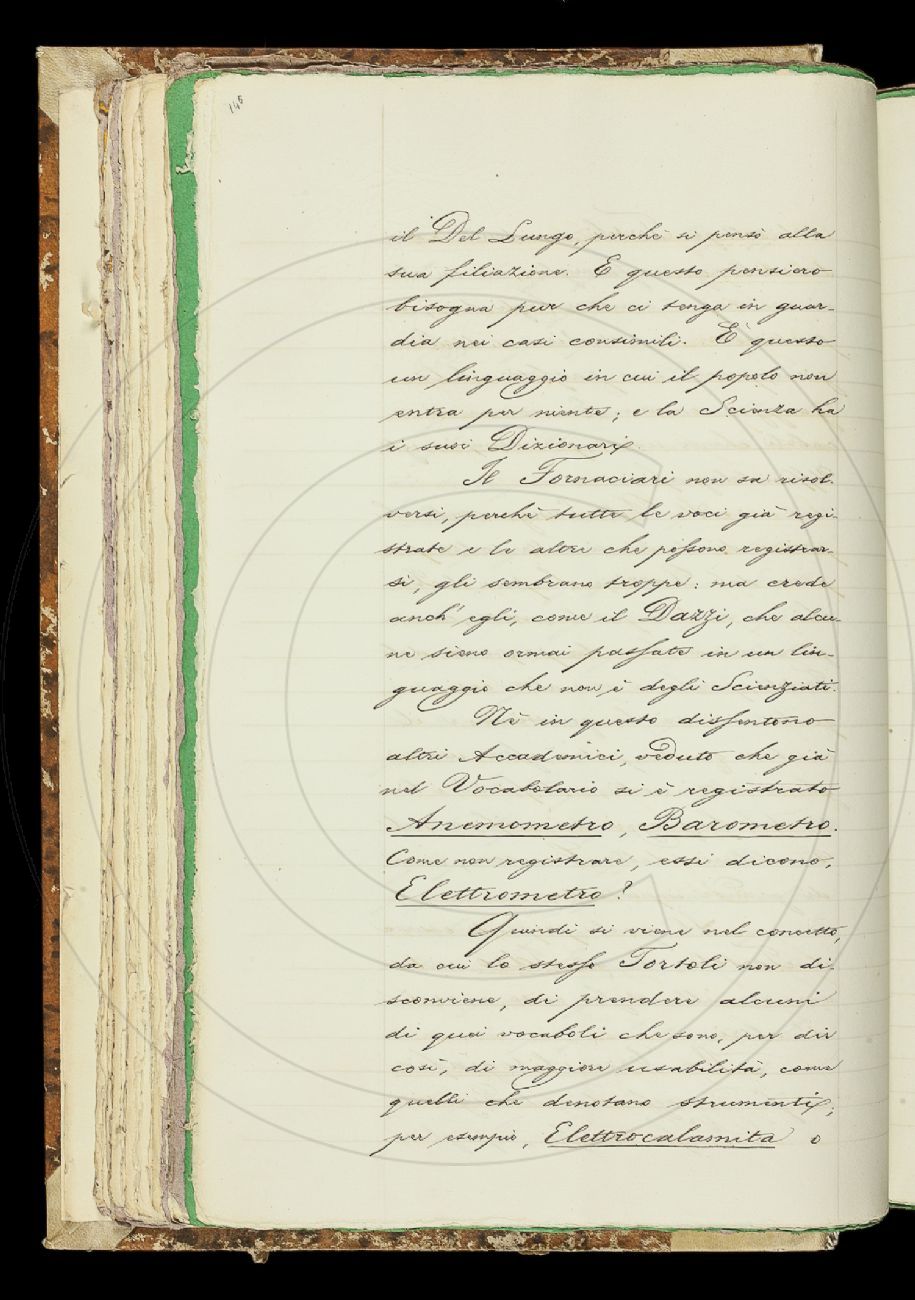 146
il Del Lungo, perchè si pensò alla
sua filiazione. E questo pensiero
bisogna pur che ci tenga in guar-
dia nei casi consimili. È questo
un linguaggio in cui il popolo non
entra per niente; e la Scienza ha
i suoi Dizionarj.
Il Fornaciari non sa risol-
versi, perchè tutte le voci già regi-
strate e le altre che possono registrar-
si, gli sembrano troppe: ma crede
anch' egli, come il Dazzi, che alcu-
ne sieno ormai passate in un lin-
guaggio che non è degli Scienziati.
Nè in questo dissentono
altri Accademici, veduto che già
nel Vocabolario si è registrato
Anemometro, Barometro.
Come non registrare, essi dicono,
Elettrometro?
Quindi si viene nel concetto,
da cui lo stesso Tortoli non di-
sconviene, di prendere alcuni
di quei vocaboli che sono, per dir
così, di maggiore usabilità, come
quelli che denotano strumenti;
per esempio, Elettrocalamita o